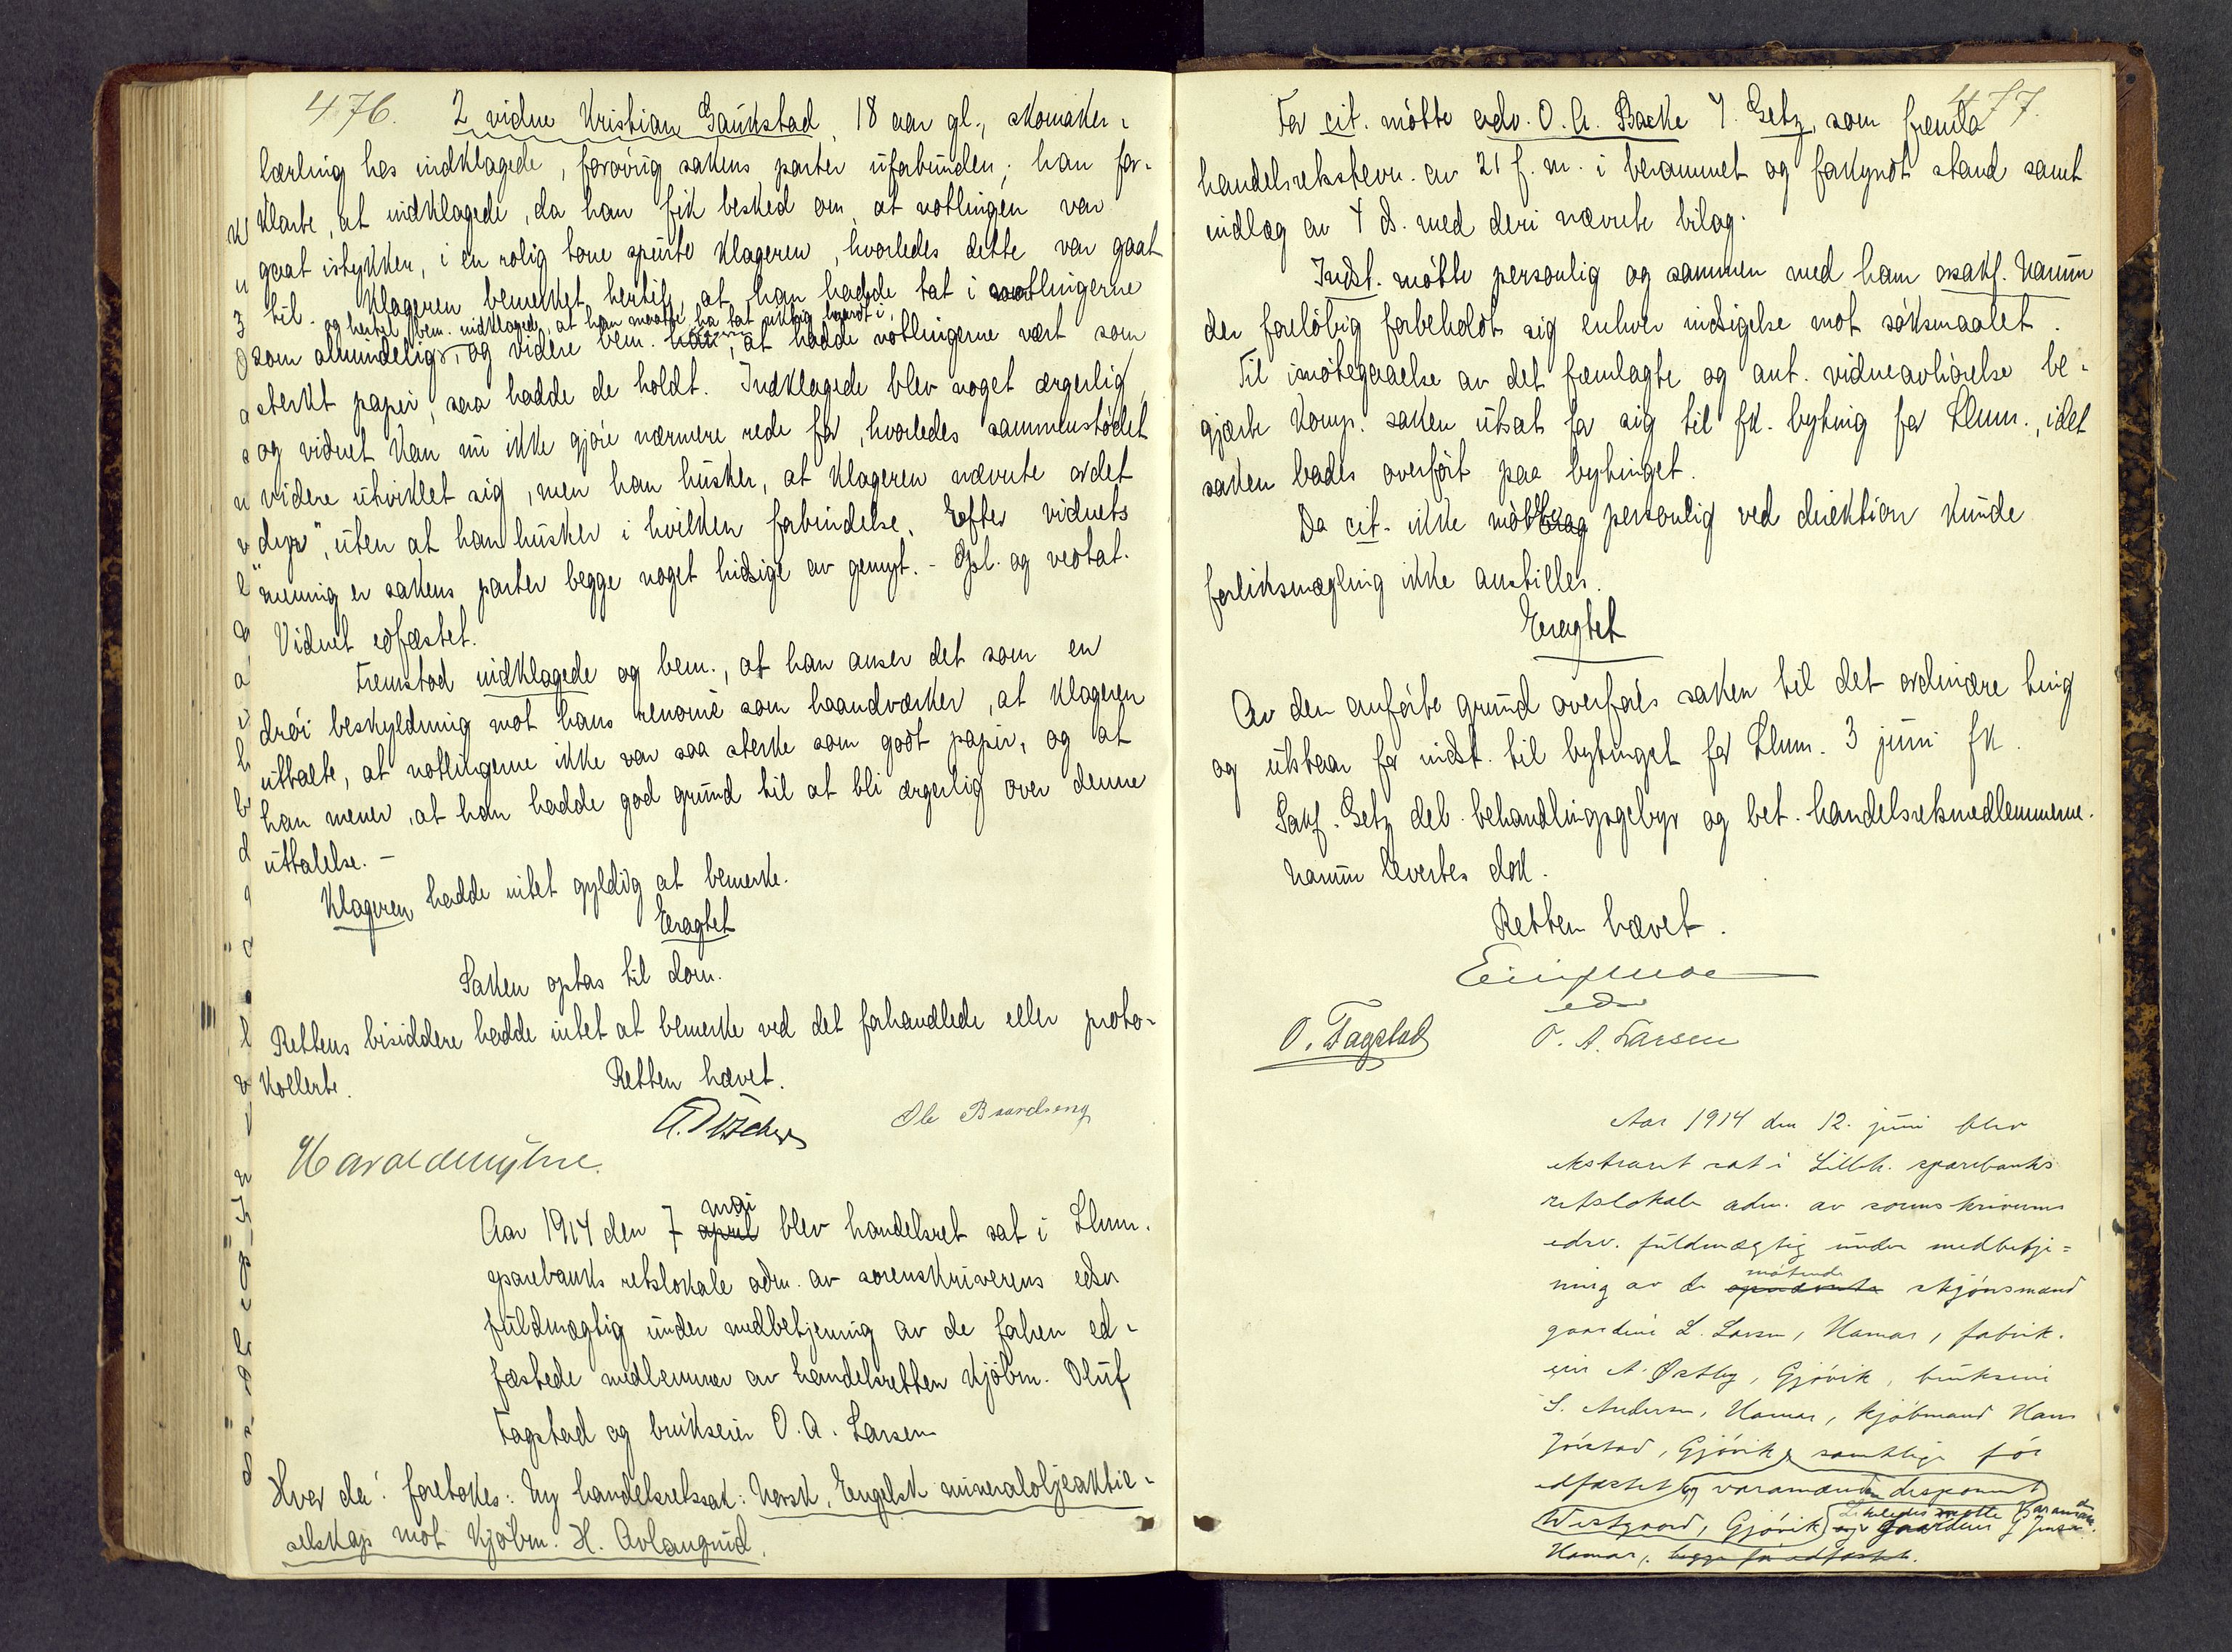 476.
2 vidne Kristian Gaukstad, 18 aar gl., skomaker-
lærling hos indklagede, forøvrig sakens parter uforbunden; han for-
klarte, at indklagede, da han fik besked om, at votlingen var
gaat istykker, i en rolig tone spurte klageren, hvorledes dette var gaat
til. Klageren bemerket hertil, at han hadde tat i votlingerne
og hertil bem. indklagede, at han maatte ha tat uklig haardt i,
som almindelig, og videre bem. han, at hadde votlingerne vært som
sterkt papir, saa hadde de holdt. Indklagede blev noget ærgerlig,
og vidnet kan nu ikke gjøre nærmere rede for, hvorledes sammenstødet
videre utviklet sig, men han husker, at klageren nævnte ordet
"dyr", uten at han husker i hvilken forbindelse. Efter vidnets
mening er sakens parter begge noget hidsige av gemyt. - Opl. og vedtat.
Vidnet edfæstet.
Fremstod indklagede og bem., at han anser det som en
drøi beskyldning mot hans renomé som haandverker, at klageren
uttalte, at votlingerne ikke var saa sterke som godt papir, og at
han mener, at han hadde god grund til at bli ærgerlig over denne
uttalelse. -
Klageren hadde intet gyldig at bemerke.
Eragtet
Saken optas til dom.
Rettens bisiddere hadde intet at bemerke ved det forhandlede eller proto-
kollerte.
Retten hævet.
Ole Baardseng
Aar 1914 den 7 april mai blev handelsret sat i Lhm.
sparebanks retslokale adm. av sorenskriverens edsv
fuldmægtig under medbetjening av de forhen ed-
fæstede medlemmer av handelsretten kjøbm. Oluf
Fagstad og brukseier O. A. Larsen
Hvor da: foretokes: Ny handelsretssak: Norsk, Engelsk mineraloljeaktie-
selskap mot kjøbm. H. Avlangrud.
477.
For cit. møtte adv. O. A. Backe v. Getz, som fremla
handelsretsstevn. av 21 f. m. i berammet og forkyndt stand samt
indlæg av 4 ds. med deri nævnte bilag.
Indst. møtte personlig og sammen med ham osakf. Namm
der foreløbig forbeholdt sig enhver indsigelse mot søksmaalet.
Til imøtegaaelse av det fremlagte og ant. vidneavhørelse be-
gjærte komp. saken utsat for sig til fk. byting for Lhm., idet
saken bades overført paa bytinget.
Da cit. ikke møtte personlig ved direktion kunde
forliksmægling ikke anstilles.
Eragtet
Av den anførte grund overføres saken til det ordinære ting
og utstaar for indst. til bytinget for Lhm. 3 juni fk.
Sakf. Getz deb. behandlingsgebyr og bet. handelsretsmedlemmerne.
Namm levertes dok.
Retten hævet.
edsv
O. Fagstad O. A. Larsen
Aar 1914 den 12. juni blev
ekstraret sat i Lilleh. sparebanks
retslokale adm. av sorenskriverens
edsv. fuldmægtig under medbetje=
ning av de møtende skjønsmænd
gaardeier L. Larsen, Hamar, fabrik-
eier A. Østby, Gjøvik, brukseier
S. Andersen, Hamar, kjøbmand Hans
Jørstad, Gjøvik, samtlige før
edfæstet og varamanden disponent
Westgaard, Gjøvik Likeledes møtte varamand
gaardeier J Jensen
Hamar, begge før edfæstet.